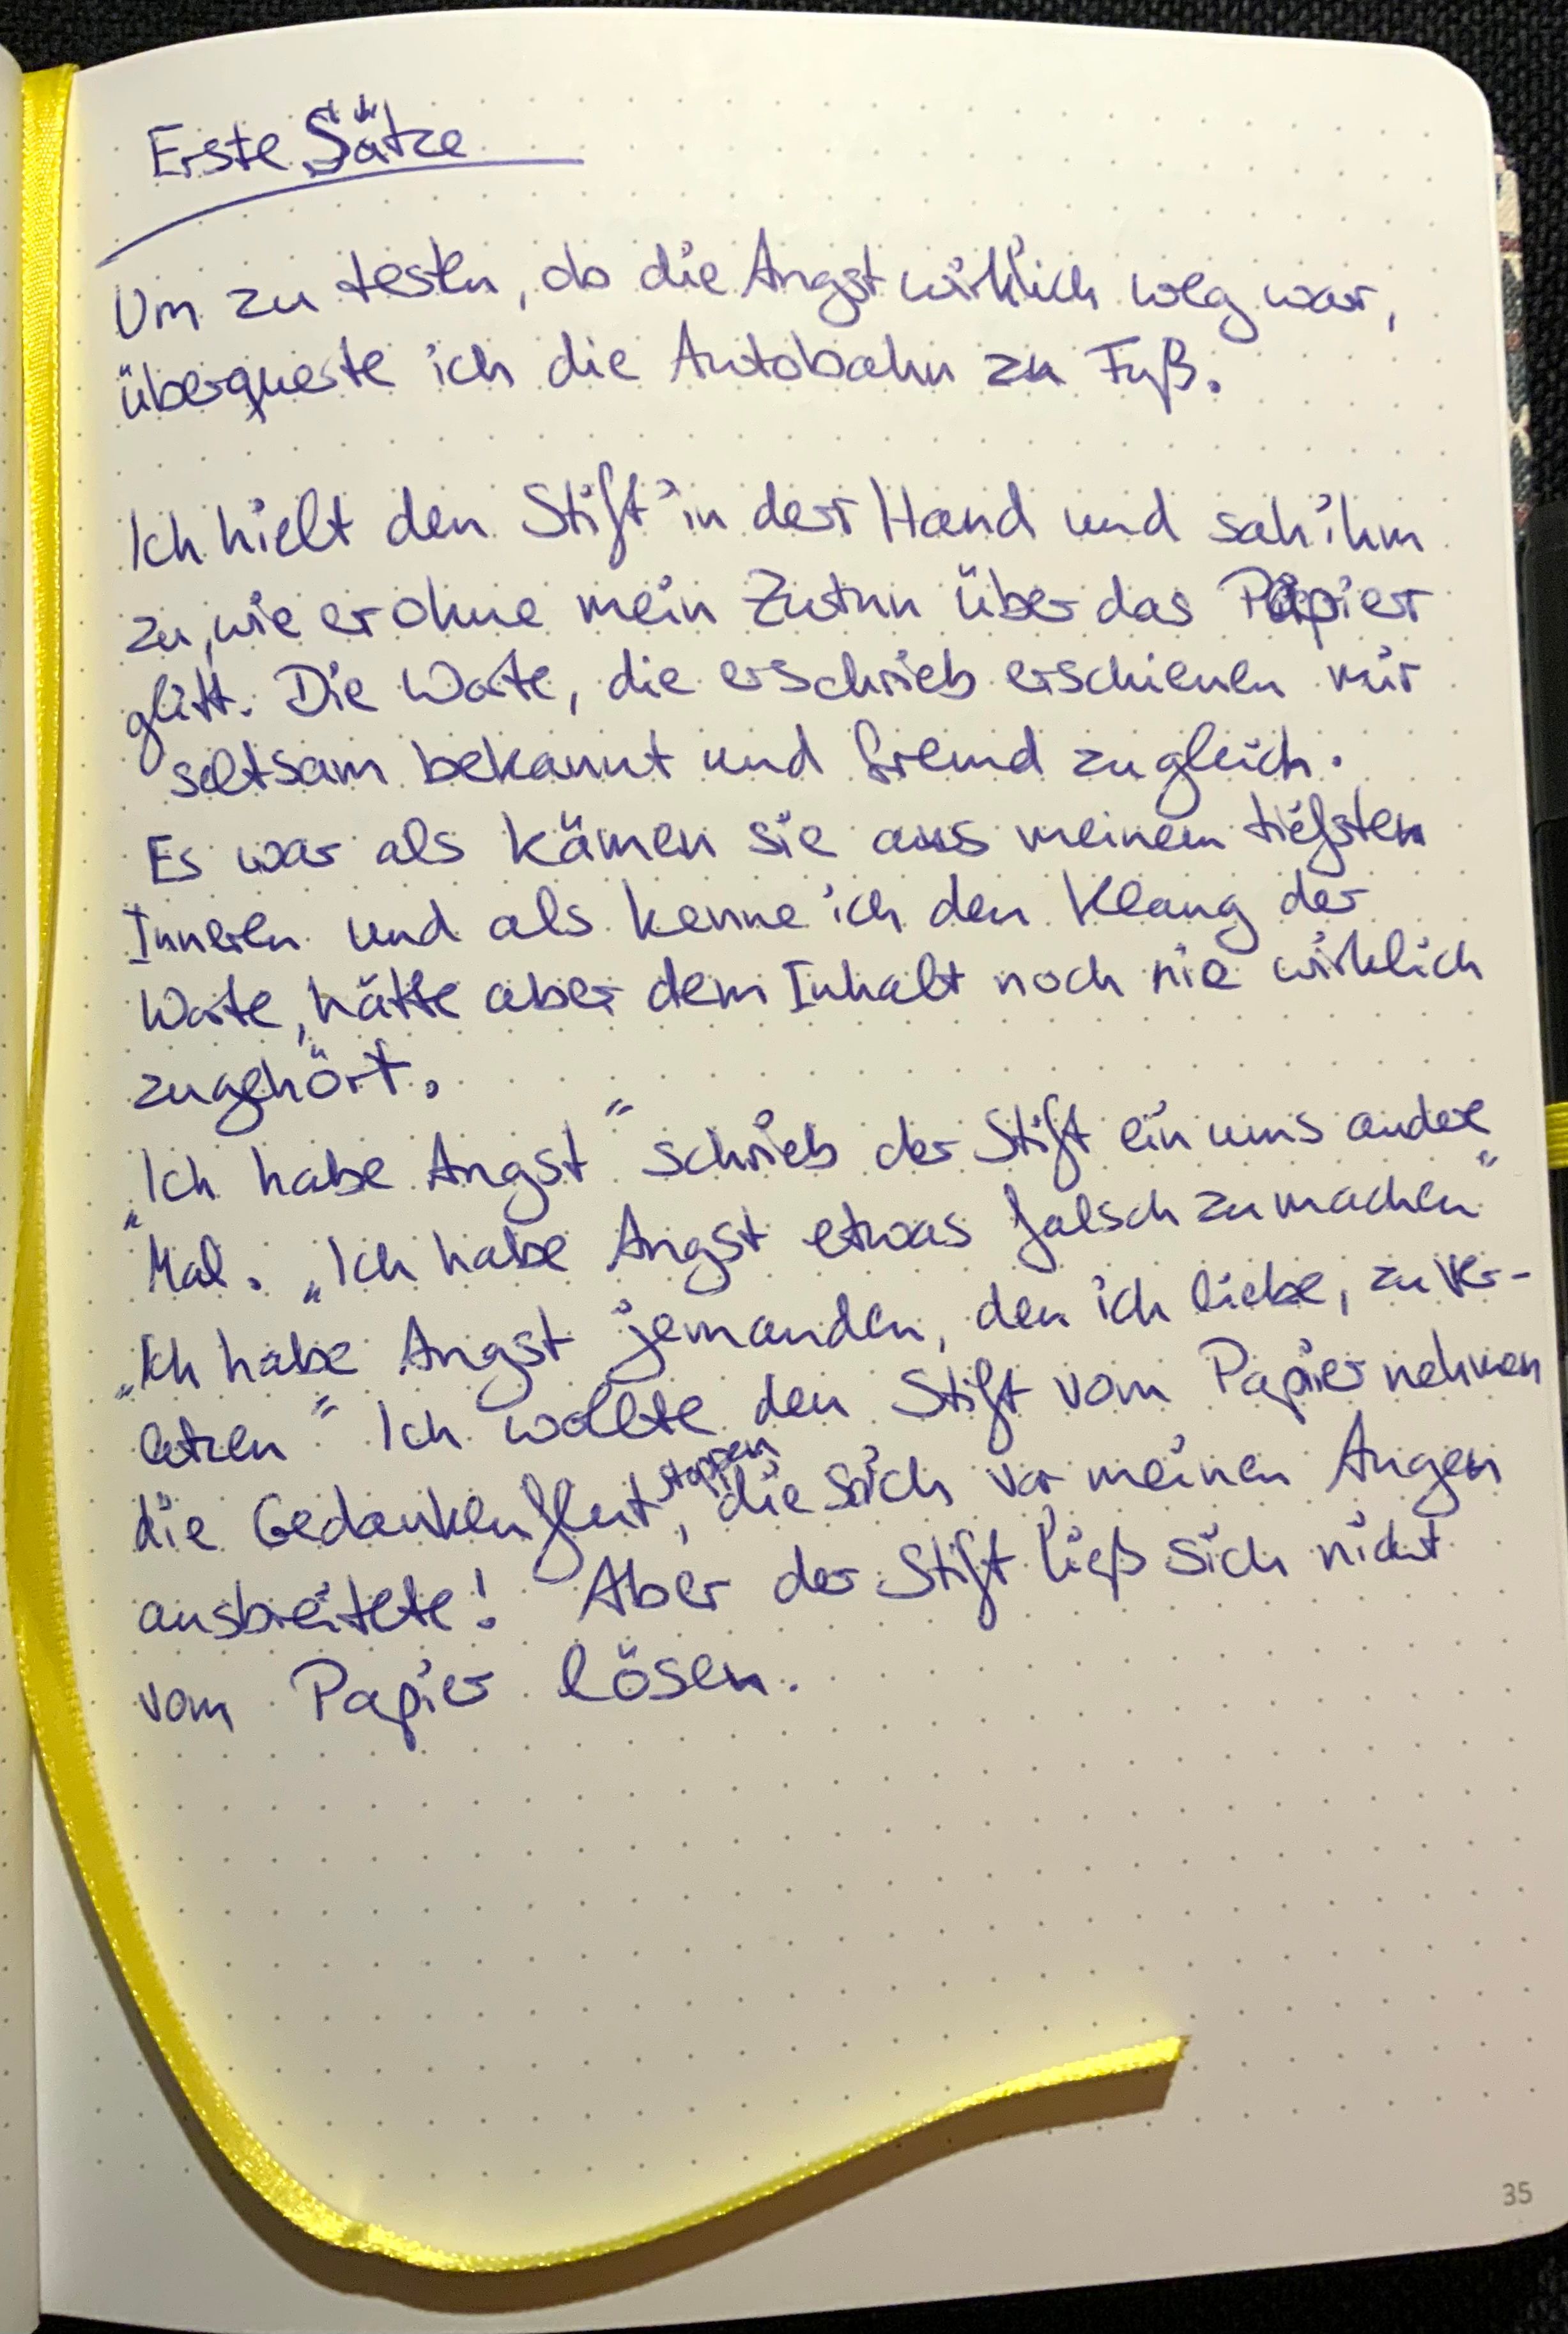 Erste Sätze
Um zu testen, ob die Angst wirklich weg war,
überquerte ich die Autobahn zu Fuß.
Ich hielt den Stift in der Hand und sah ihm
zu, wie er ohne mein Zutun über das Papier
glitt. Die Worte, die er schrieb erschienen mir
seltsam bekannt und fremd zugleich.
Es war als kämen sie aus meinem tiefsten
Inneren und als kenne ich den Klang der
Worte, hätte aber dem Inhalt noch nie wirklich
zugehört.
„Ich habe Angst“ schrieb der Stift ein ums andere
Mal. „Ich habe Angst etwas falsch zu machen“
„Ich habe Angst jemanden, den ich liebe, zu ver-
letzen“ Ich wollte den Stift vom Papier nehmen
die Gedankenflut stoppen, die sich vor meinen Augen
ausbreitete! Aber der Stift ließ sich nicht
vom Papier lösen.
35